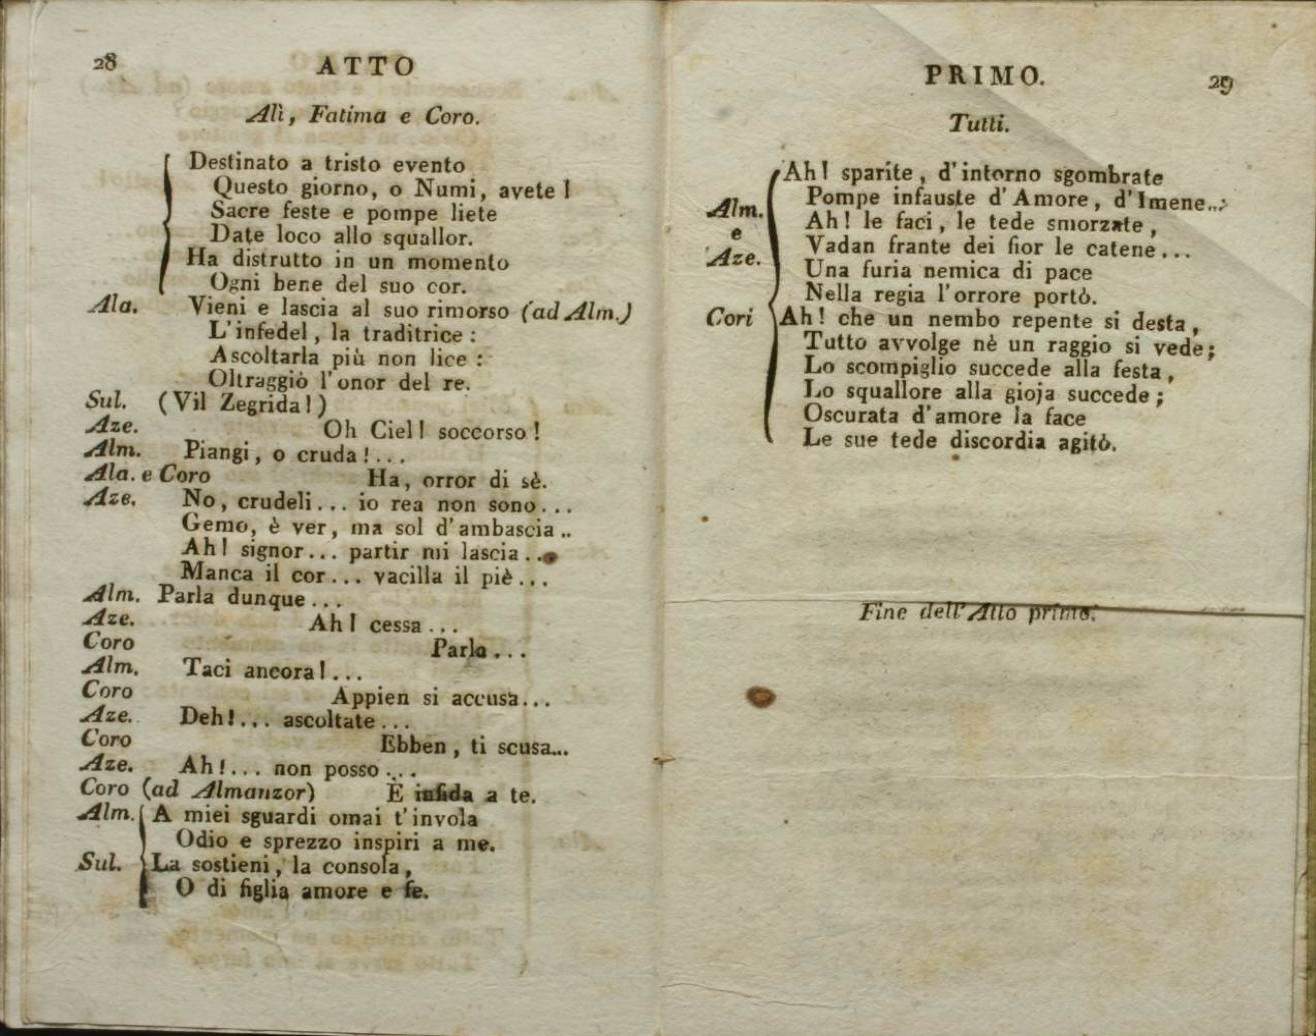 28
ATTO
Alì, Fatima e Coro.
Destinato a tristo evento
Questo giorno, o Numi, avete!
Sacre feste e pompe liete
Date loco allo squallor.
Ha distrutto in un momento
Ogni bene del suo cor.
Ala. Vieni e lascia al suo rimorso (ad Alm.)
L'infedel, la traditrice:
Ascoltarla più non lice:
Oltraggiò l'onor del re.
Sul. (Vil Zegrida!)
Aze. Oh Ciel! soccorso!
Alm. Piangi, o cruda!...
Ala. e Coro Ha, orror di sè.
Aze. No, crudeli... io rea non sono...
Gemo, è ver, ma sol d'ambascia..
Ah! signor... partir mi lascia...
Manca il cor... vacilla il piè...
Alm. Parla dunque...
Aze. Ah! cessa...
Coro Parla...
Alm. Taci ancora!...
Coro Appien si accusa...
Aze. Deh!... ascoltate...
Coro Ebben, ti scusa...
Aze. Ah!... non posso...
Coro (ad Almanzor) È infida a te.
Alm. A miei sguardi omai t'invola
Odio e sprezzo inspiri a me.
Sul. La sostieni, la consola,
O di figlia amore e fe.
PRIMO.
29
Tutti.
Ah! sparite, d'intorno sgombrate
Alm. Pompe infauste d'Amore, d'Imene...
e Ah! le faci, le tede smorzate,
Aze. Vadan frante dei fior le catene...
Una furia nemica di pace
Nella regia l'orrore portò.
Cori Ah! che un nembo repente si desta,
Tutto avvolge nè un raggio si vede;
Lo scompiglio succede alla festa,
Lo squallore alla gioja succede;
Oscurata d'amore la face
Le sue tede discordia agitò.
Fine dell'Atto primo.